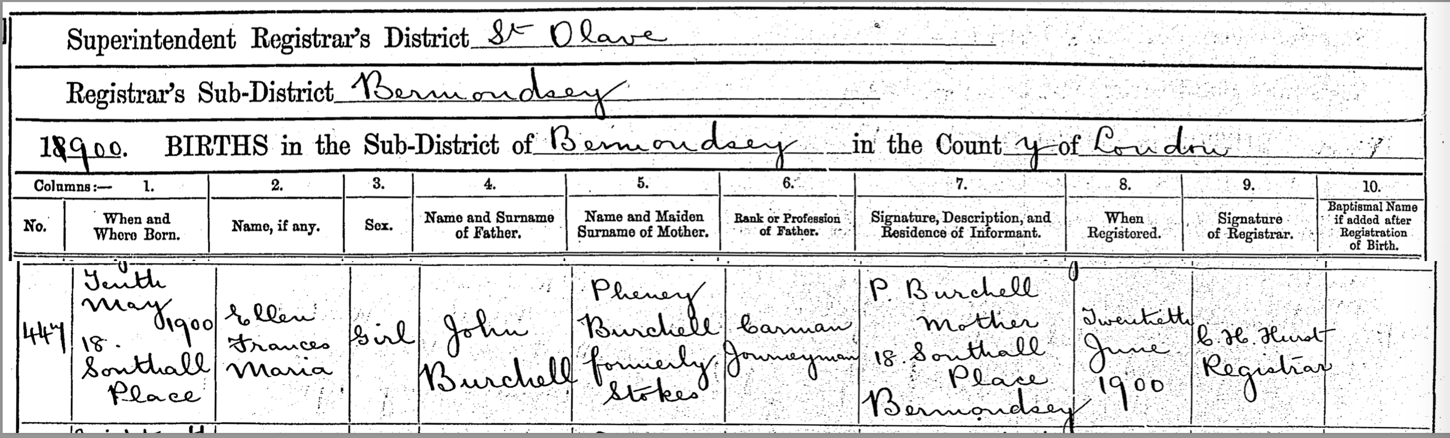 Superintendent Registrar's District St Olave
Registrar's Sub-District Bermondsey
1900. BIRTHS in the Sub-District of Bermondsey in the County of London
Columns:— 1. 2. 3. 4. 5. 6. 7. 8. 9. 10.
No. When and Where Born. Name, if any. Sex. Name and Surname of Father. Name and Maiden Surname of Mother. Rank or Profession of Father. Signature, Description, and Residence of Informant. When Registered. Signature of Registrar. Baptismal Name if added after Registration of Birth.
447
Tenth
May 1900
18.
Southall
Place
Ellen
Frances
Maria
Girl
John
Burchell
Pheney
Burchell
formerly
Stokes
Carman
Journeyman
P. Burchell
Mother
18. Southall
Place
Bermondsey
Twentieth
June
1900
C. H. Hurst
Registrar